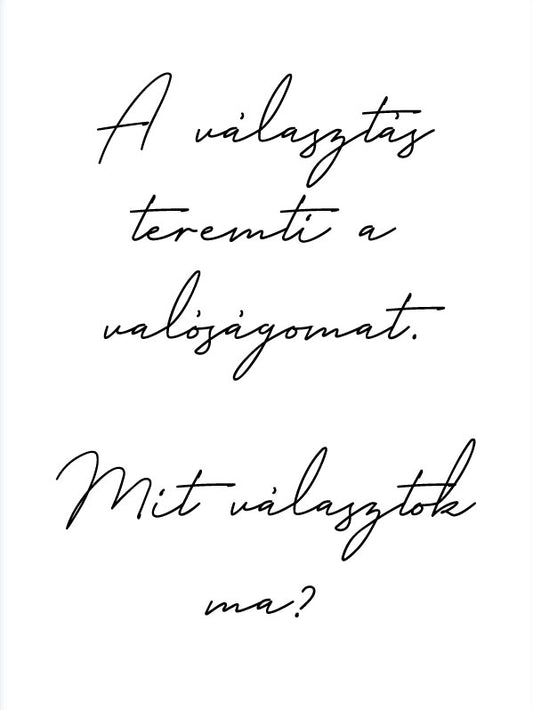 A választás
teremti a
valóságomat.
Mit választok
ma?